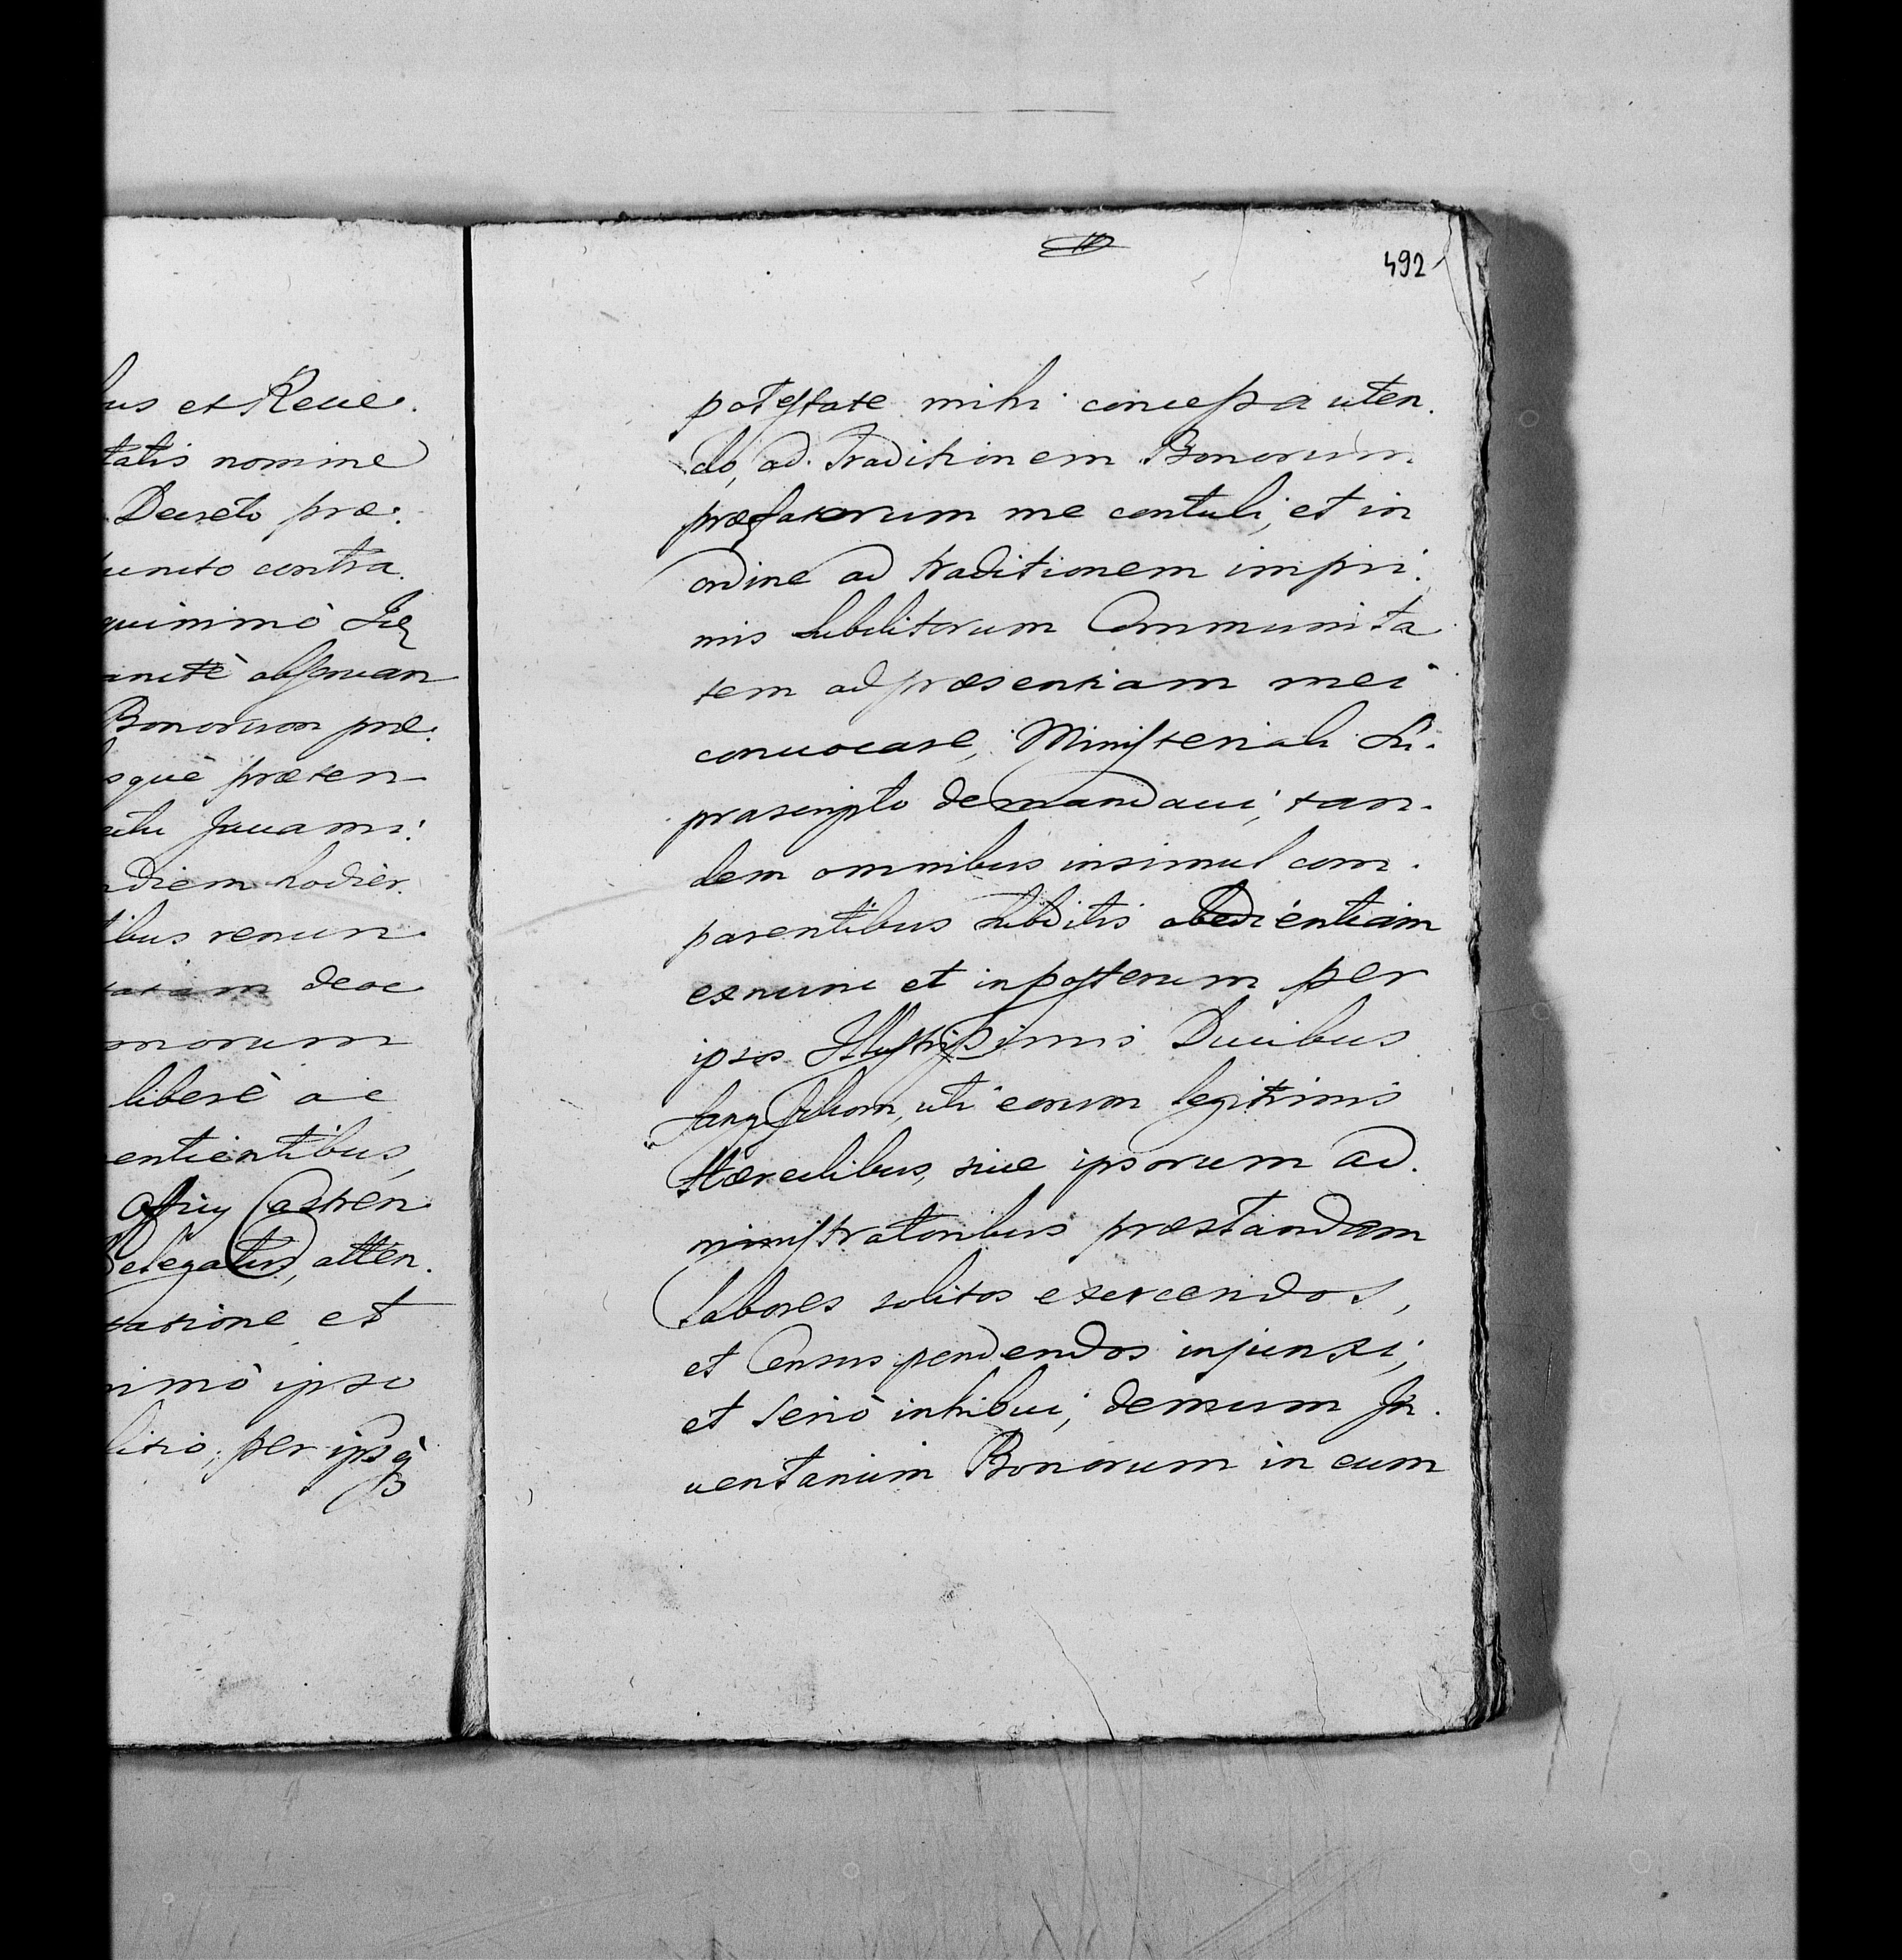 bus et Reue.
tatis nomine
Decreto præ.
contra.
quinimmò
obseruan
Bonorum præ.
sque præten
diem hodier.
tibus renun.
deoc
onorum
liberè ac
entientibus,
Officij Castren
Delegatus, atten.
tatione et
nimò ipso
litio, per ipsa
492
potestate mihi concessa uten.
do, ad Traditionem Bonorum
præfatorum me contuli, et in
ordine ad traditionem impri.
mis Subditorum Communita
tem ad præsentiam mei
conuocare, Ministeriali Su.
prascripto demandaui, tan.
dem omnibus insimul com.
parentibus subditis obedientiam
exnunc et inposterum per
ipsos Illustrissimis Ducibus
uti eorum legitimis
Hæredibus, siue ipsorum ad.
ministratoribus præstandam
Labores solitos exercendos,
et Census pendendos injunxi,
et seriò inhibui, demum In.
uentarium Bonorum in eum